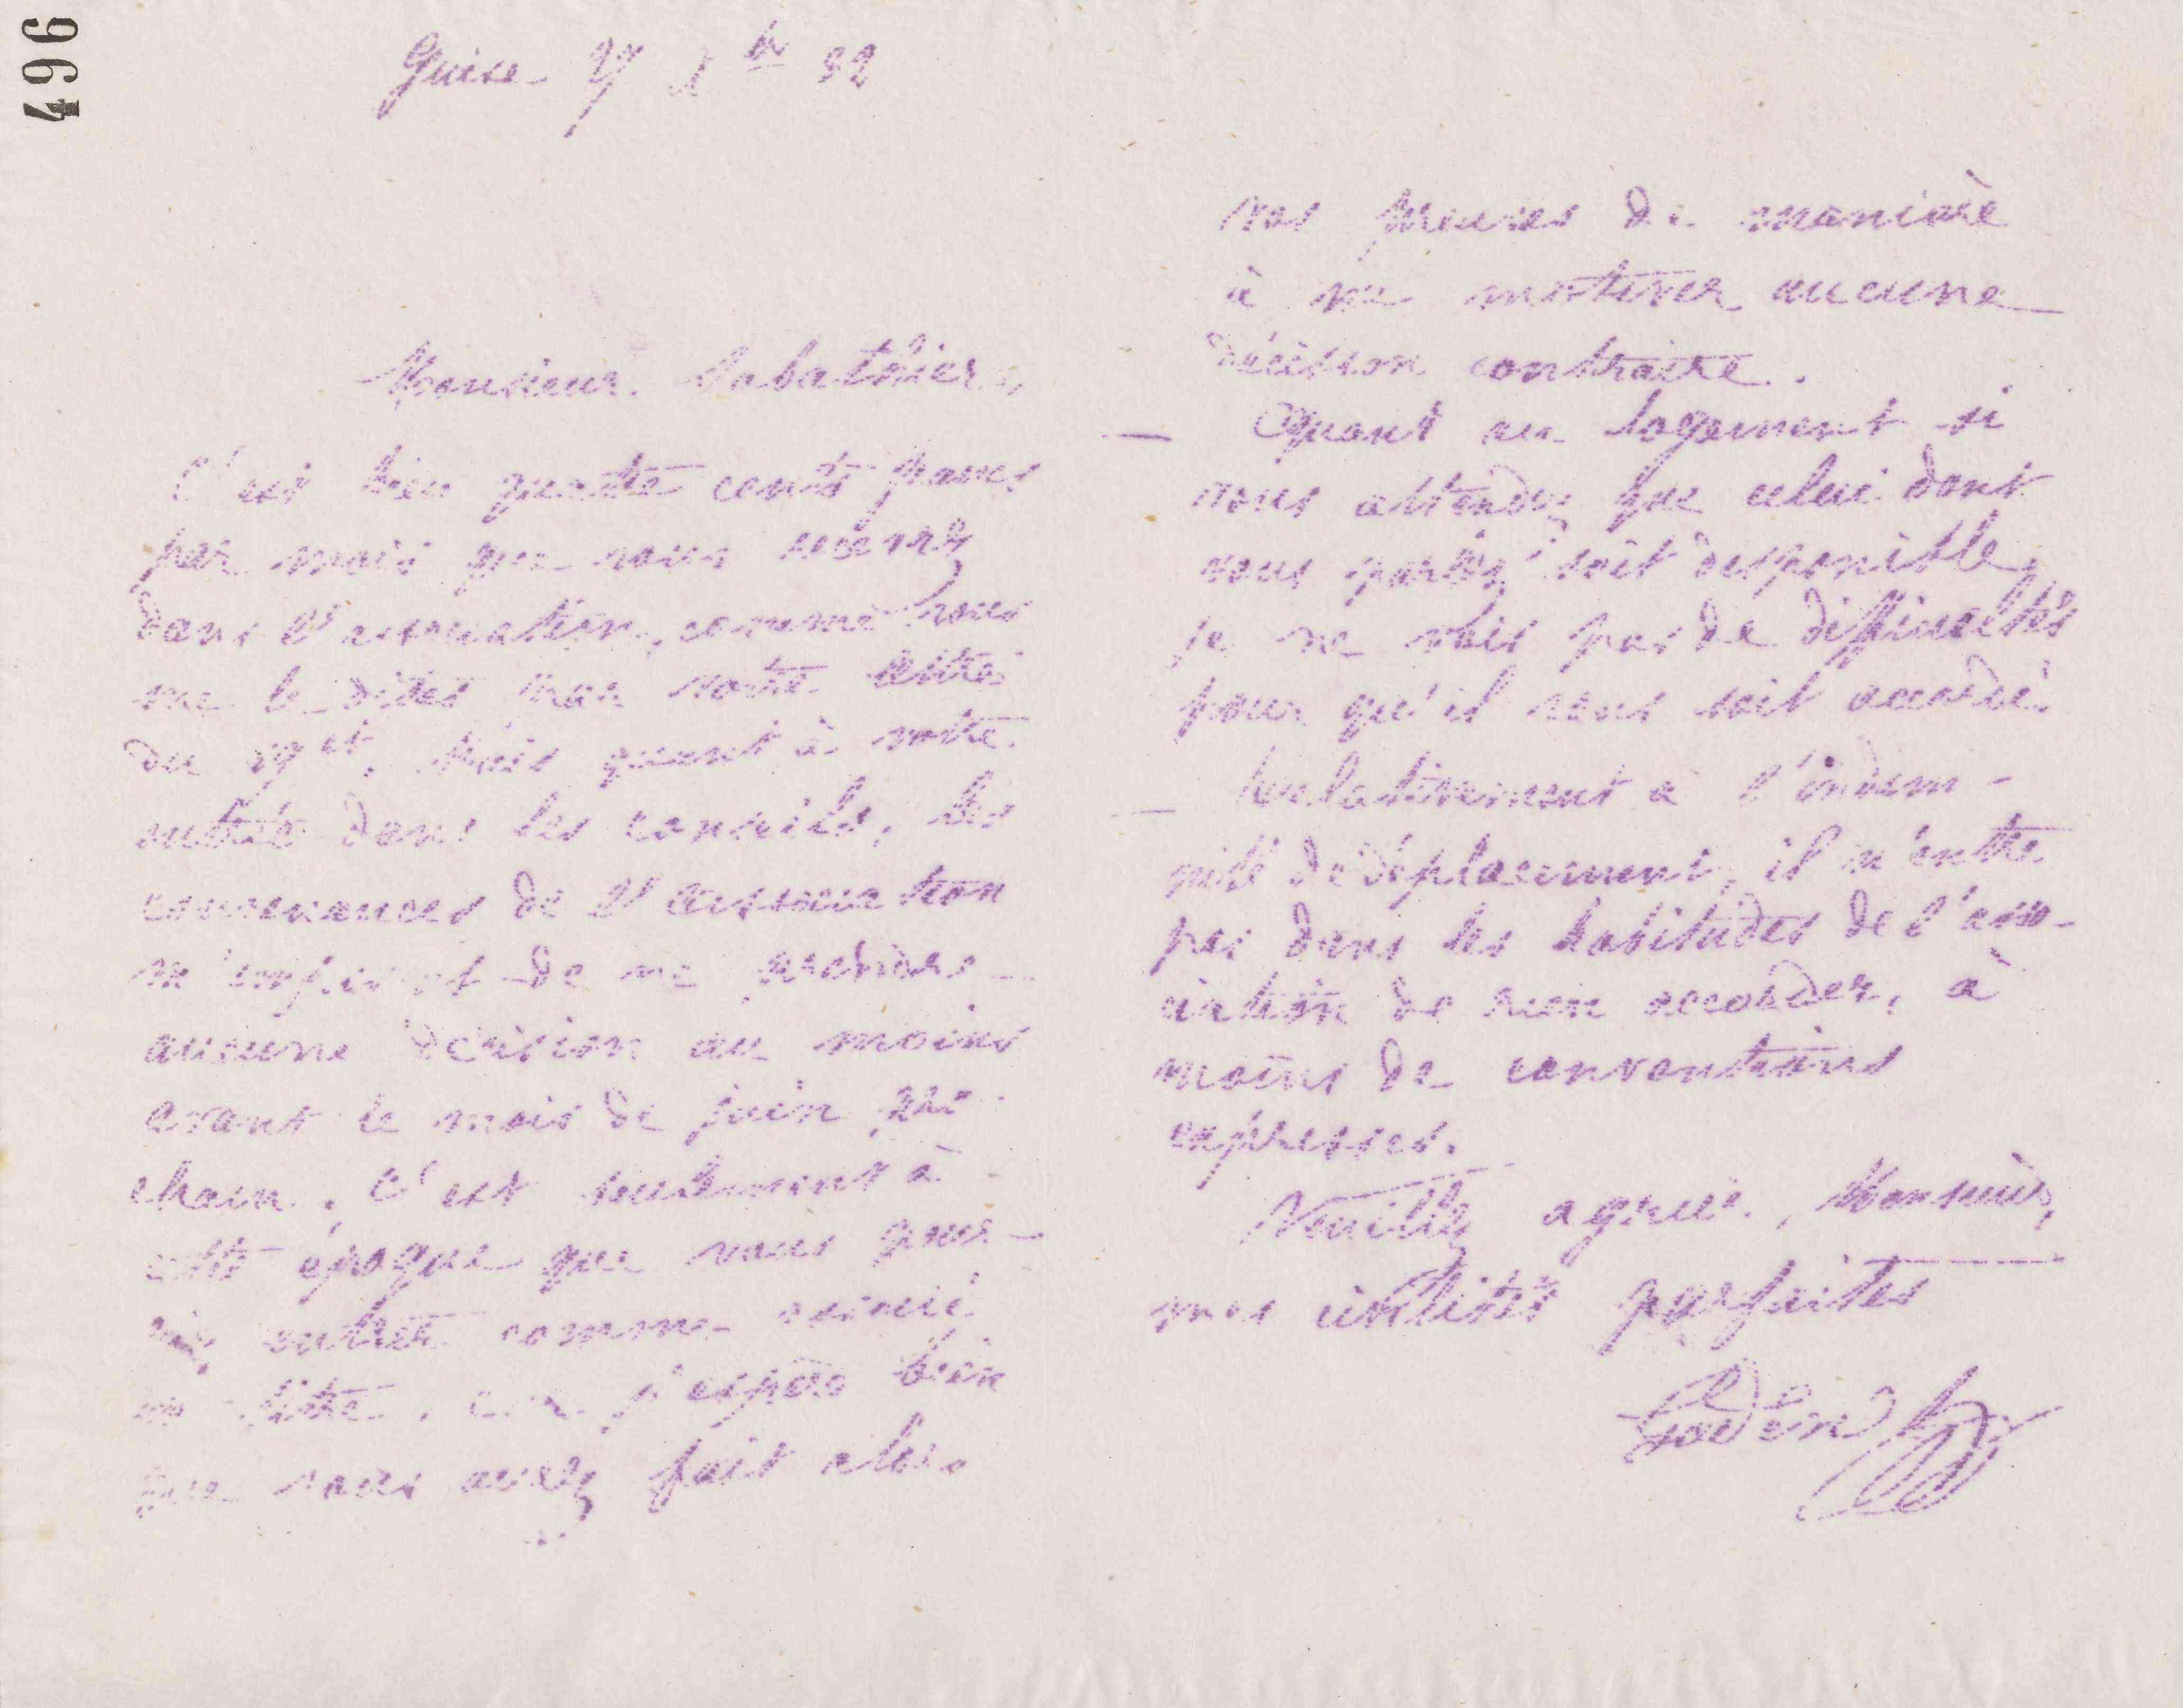 496
Guise 27 Xbre 82
Monsieur Sabathier,
C'est bien quatre cents francs
par mois que vous recevrez
dans l'association, comme vous
me le dites par votre lettre
du 19 ct. Mais quant à votre
entrée dans les conseils, les
convenances de l'Association
m'imposent de ne prendre
aucune décision au moins
avant le mois de juin pro-
chain. C'est seulement à
cette époque que vous pour-
riez entrer comme associé
en titre, car j'espère bien
que vous aurez fait alors
vos preuves de manière
à ne motiver aucune
décision contraire.
— Quant au logement si
vous attendez que celui dont
vous parlez soit disponible,
je ne vois pas de difficultés
pour qu'il vous soit accordé.
— Relativement à l'indem-
nité de déplacement, il n'entre
pas dans les habitudes de l'asso-
ciation de rien accorder, à
moins de conventions
expresses.
Veuillez agréer, Monsieur,
mes civilités parfaites
Godin